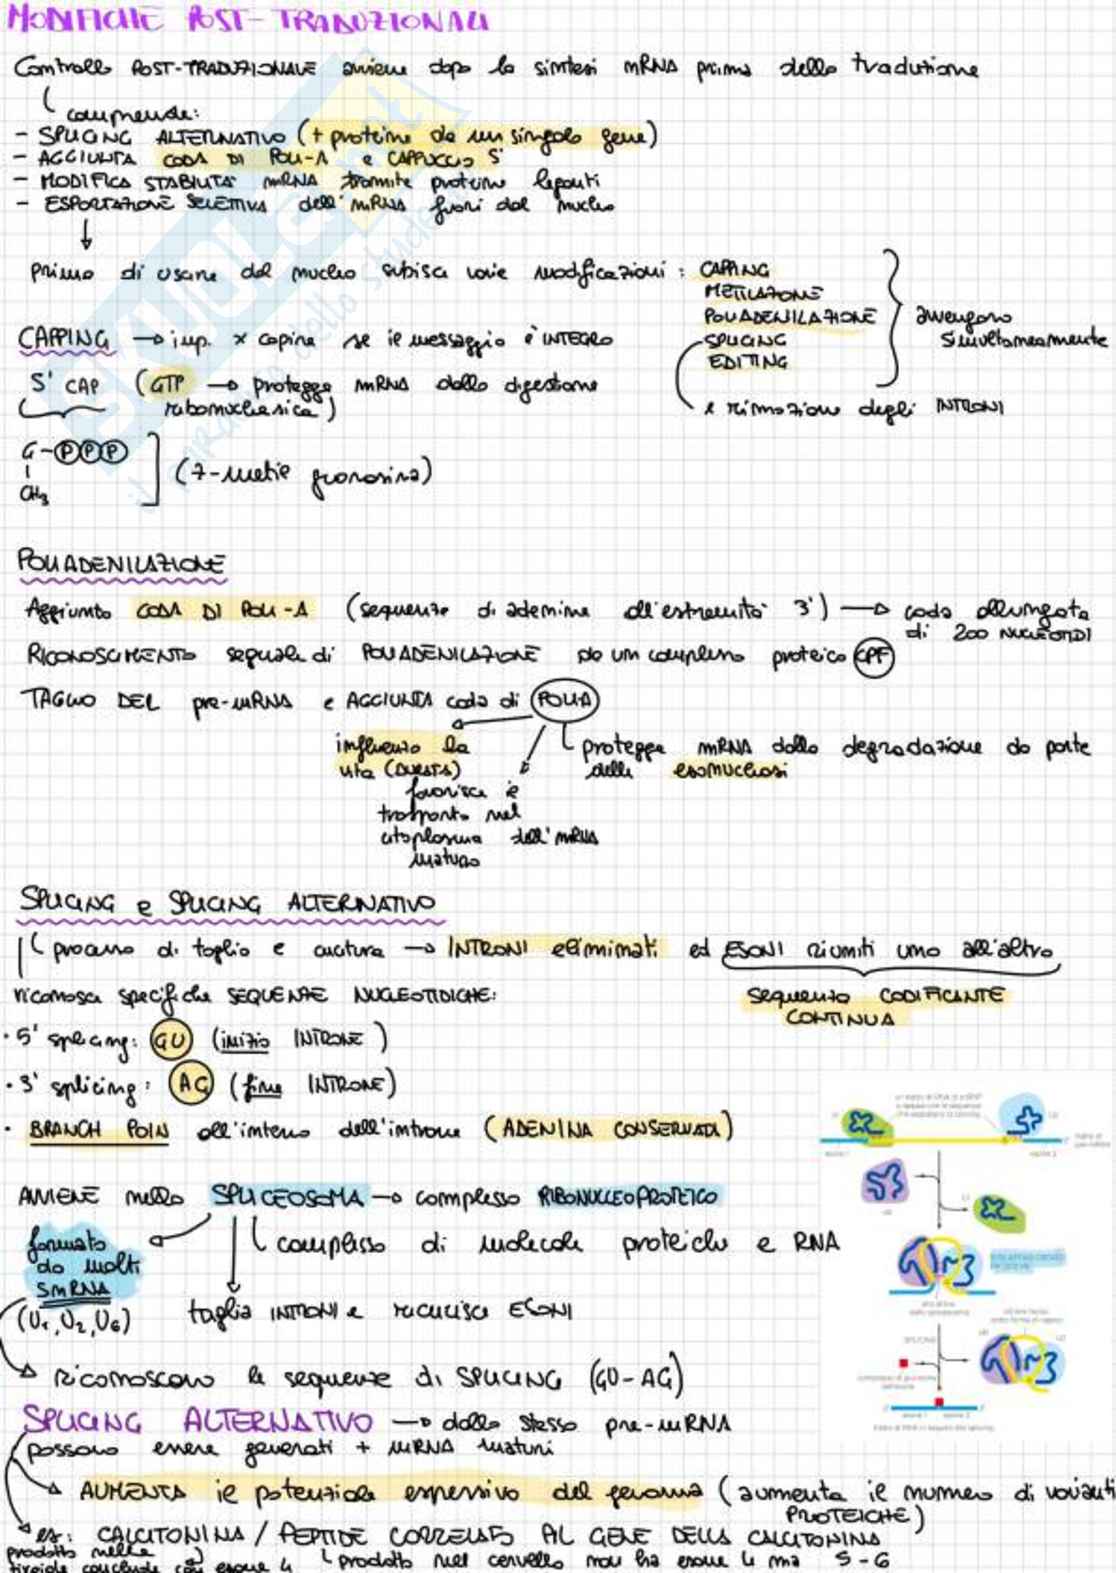 MODIFICHE POST-TRADUZIONALI
Controllo POST-TRADUZIONALE avviene dopo la sintesi mRNA prima della traduzione
comprende:
- SPLICING ALTERNATIVO (+ proteine da un singolo gene)
- AGGIUNTA CODA DI POLI-A e CAPPUCCIO 5'
- MODIFICA STABILITA' mRNA tramite proteine leganti
- ESPORTAZIONE SELETTIVA dell'mRNA fuori dal nucleo
prima di uscire dal nucleo subisce varie modificazioni: CAPPING
METILAZIONE
POLIADENILAZIONE
SPLICING
EDITING
avvengono
simultaneamente
e rimozione degli INTRONI
CAPPING → imp. x capire se il messaggio è INTEGRO
5' CAP (GTP → protegge mRNA dalla digestione
ribonucleasica)
G-PPP
CH3
(7-metil guanosina)
POLIADENILAZIONE
Aggiunta CODA DI POLI-A (sequenza di adenine all'estremità 3') → coda allungata
di 200 NUCLEOTIDI
RICONOSCIMENTO segnale di POLIADENILAZIONE da un complesso proteico CPF
TAGLIO DEL pre-mRNA e AGGIUNTA coda di POLIA
influenza la
vita (DURATA)
favorisce il
trasporto nel
citoplasma dell'mRNA
maturo
protegge mRNA dalla degradazione da parte
delle esonucleasi
SPLICING e SPLICING ALTERNATIVO
processo di taglio e cucitura → INTRONI eliminati ed ESONI riuniti uno all'altro
sequenza CODIFICANTE
CONTINUA
riconosce specifiche SEQUENZE NUCLEOTIDICHE:
• 5' splicing: GU (inizio INTRONE)
• 3' splicing: AG (fine INTRONE)
• BRANCH POIN all'interno dell'introne (ADENINA CONSERVATA)
AVVIENE nello SPLICEOSOMA → complesso RIBONUCLEOPROTEICO
formato
da molti
SnRNA
(U1, U2, U6)
complesso di molecole proteiche e RNA
taglia INTRONI e ricucisce ESONI
riconoscono le sequenze di SPLICING (GU-AG)
SPLICING ALTERNATIVO → dallo stesso pre-mRNA
possono essere generati + mRNA maturi
AUMENTA il potenziale espressivo del genoma (aumenta il numero di varianti
PROTEICHE)
es: CALCITONINA / PEPTIDE CORRELATO AL GENE DELLA CALCITONINA
prodotta nella
tiroide conclude con esone 4
prodotto nel cervello non ha esone 4 ma 5-6